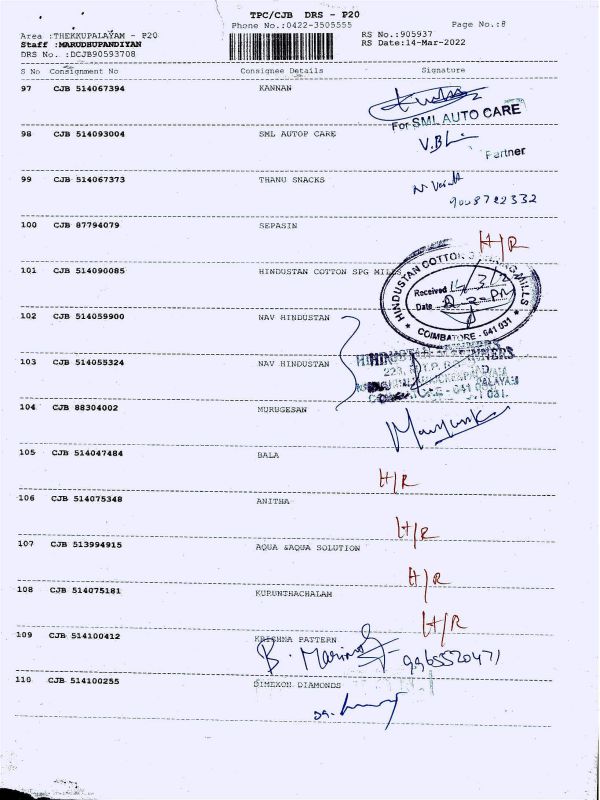 TPC/CJB DRS - P20
Phone No.:0422-3505555 Page No.:8
Area :THEKKUPALAYAM - P20 RS No.:905937
Staff :MARUDHUPANDIYAN RS Date:14-Mar-2022
DRS No. :DCJB90593708
S No Consignment No Consignee Details Signature
97 CJB 514067394 KANNAN
For SML AUTO CARE
98 CJB 514093004 SML AUTOP CARE
Partner
99 CJB 514067373 THANU SNACKS
9008722332
100 CJB 87794079 SEPASIN H/R
101 CJB 514090085 HINDUSTAN COTTON SPG MILLS
HINDUSTAN COTTON MILLS
Received
Date
COIMBATORE - 641 031
102 CJB 514059900 NAV HINDUSTAN
103 CJB 514055324 NAV HINDUSTAN
104 CJB 88304002 MURUGESAN
105 CJB 514047484 BALA H/R
106 CJB 514075348 ANITHA H/R
107 CJB 513994915 AQUA &AQUA SOLUTION H/R
108 CJB 514075181 KURUNTHACHALAM H/R
109 CJB 514100412 KRISHNA PATTERN
9965520471
110 CJB 514100255 DIMEXON DIAMONDS